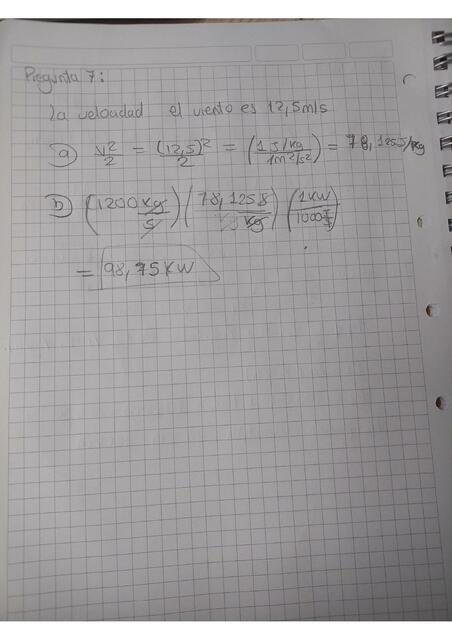 Pregunta 7:
La velocidad el viento es 12,5m/s
a) V²/2 = (12,5)²/2 = (1 J/kg / 1m²/s²) = 78,125J/kg
b) (1200 kg/s) (78,125 J/kg) (1KW/1000 J/s)
= 98,75KW